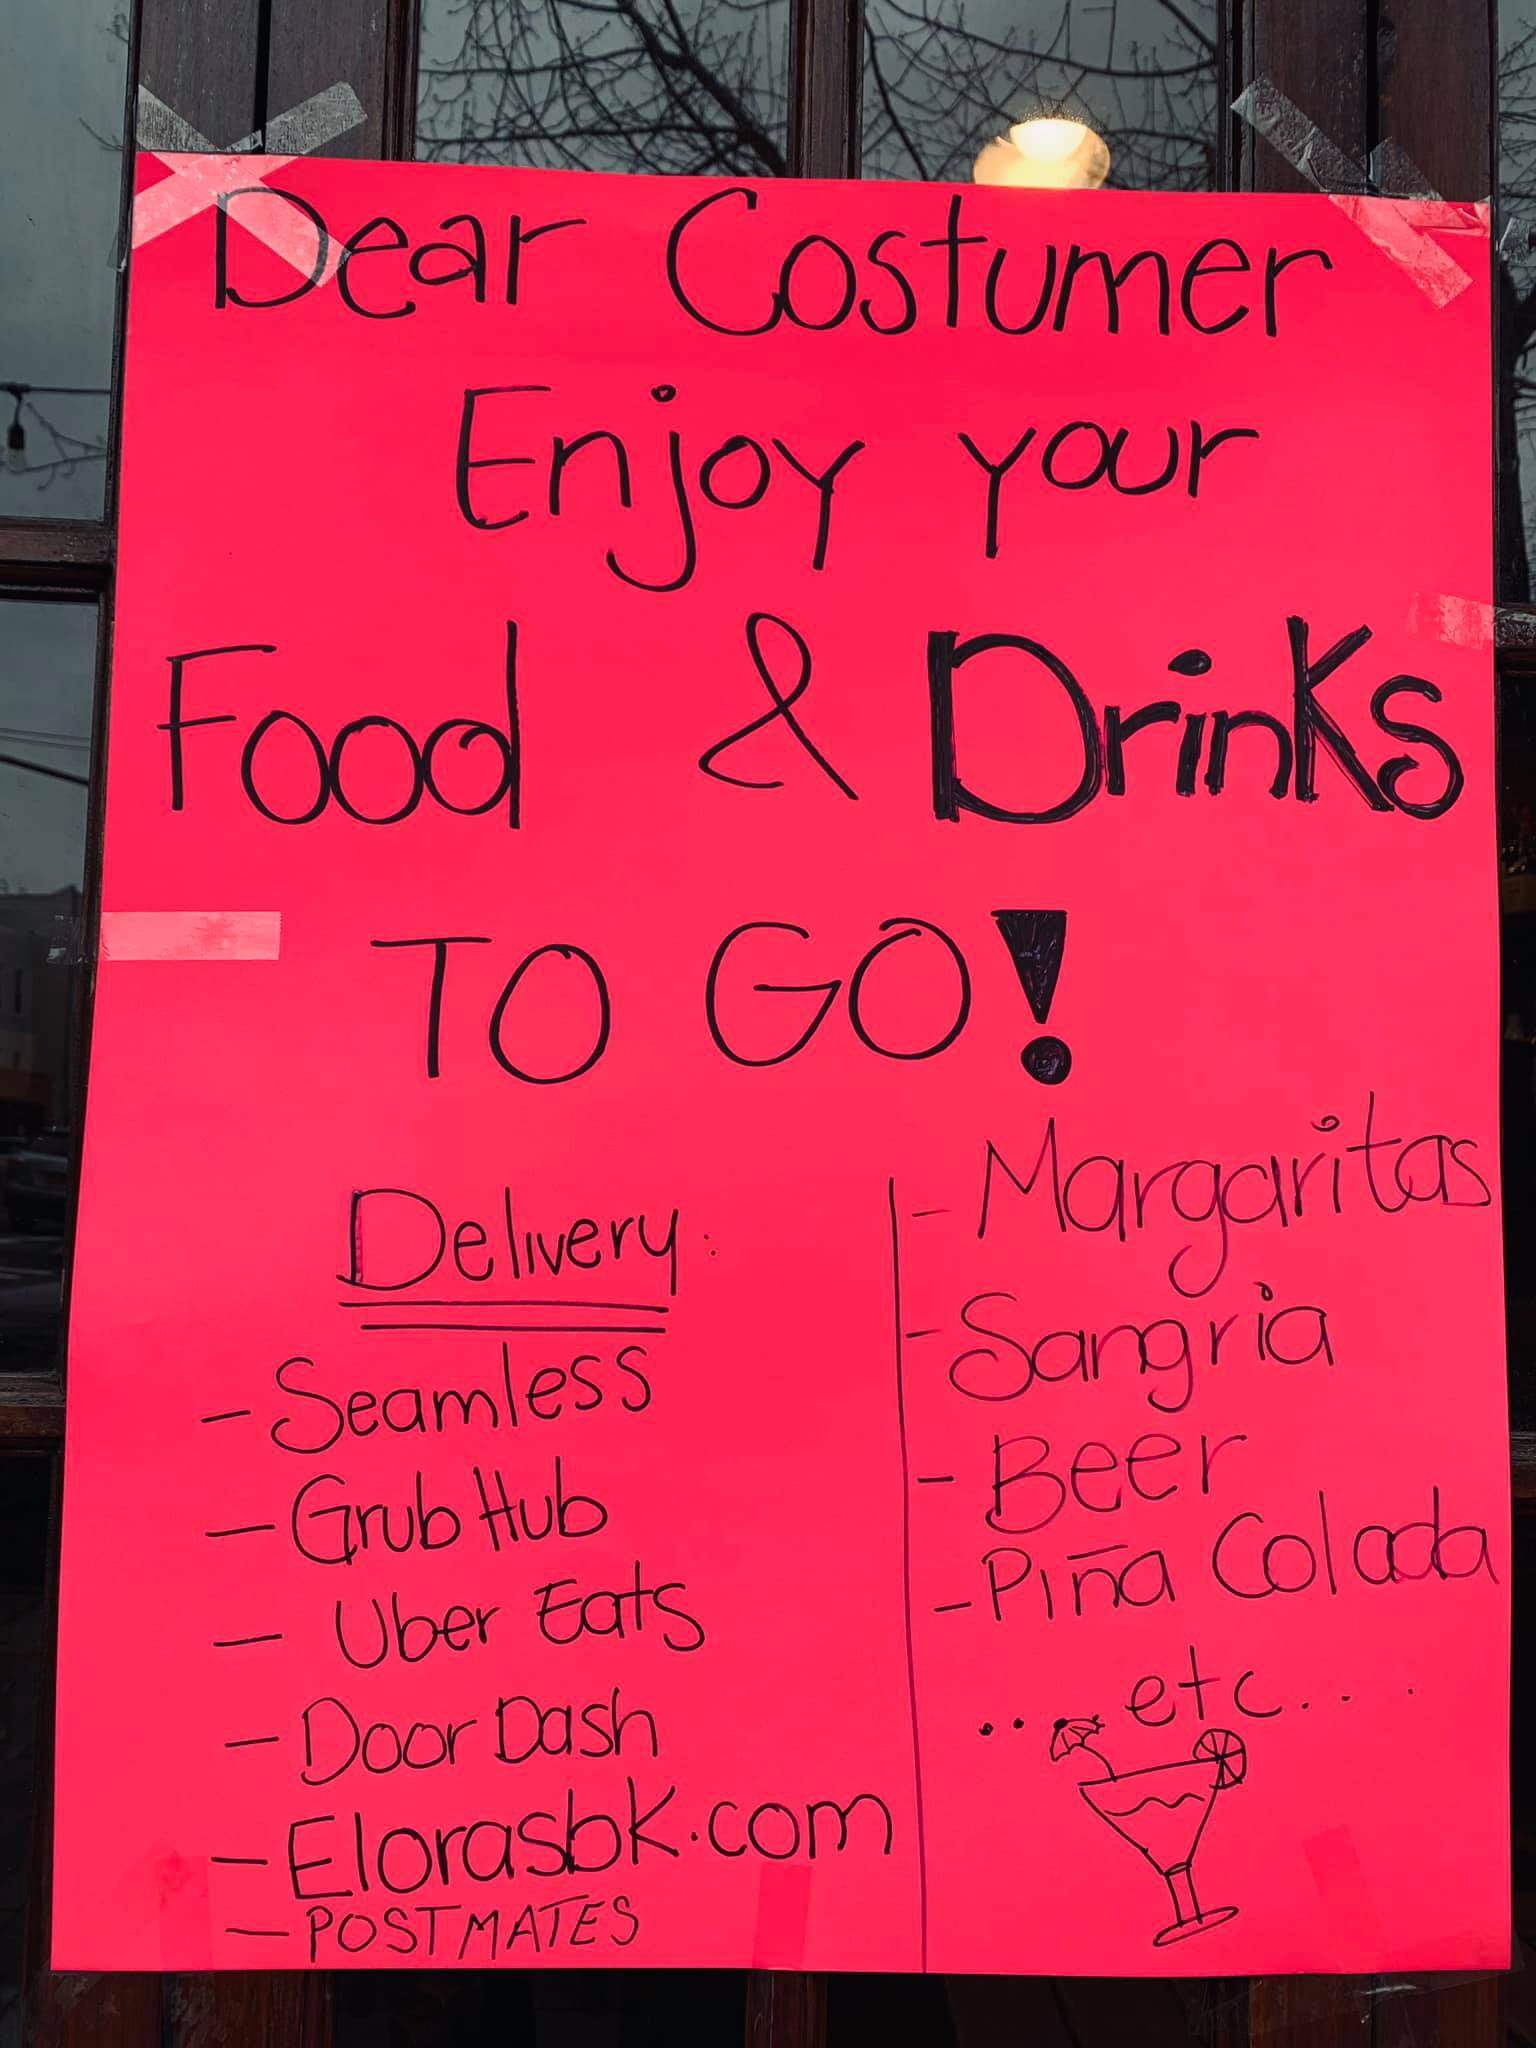 Dear Costumer
Enjoy your
Food & Drinks
TO GO!
Delivery:
- Seamless
- GrubHub
- Uber Eats
- Door Dash
- Elorasbk.com
- POSTMATES
- Margaritas
- Sangria
- Beer
- Piña Colada
... etc....